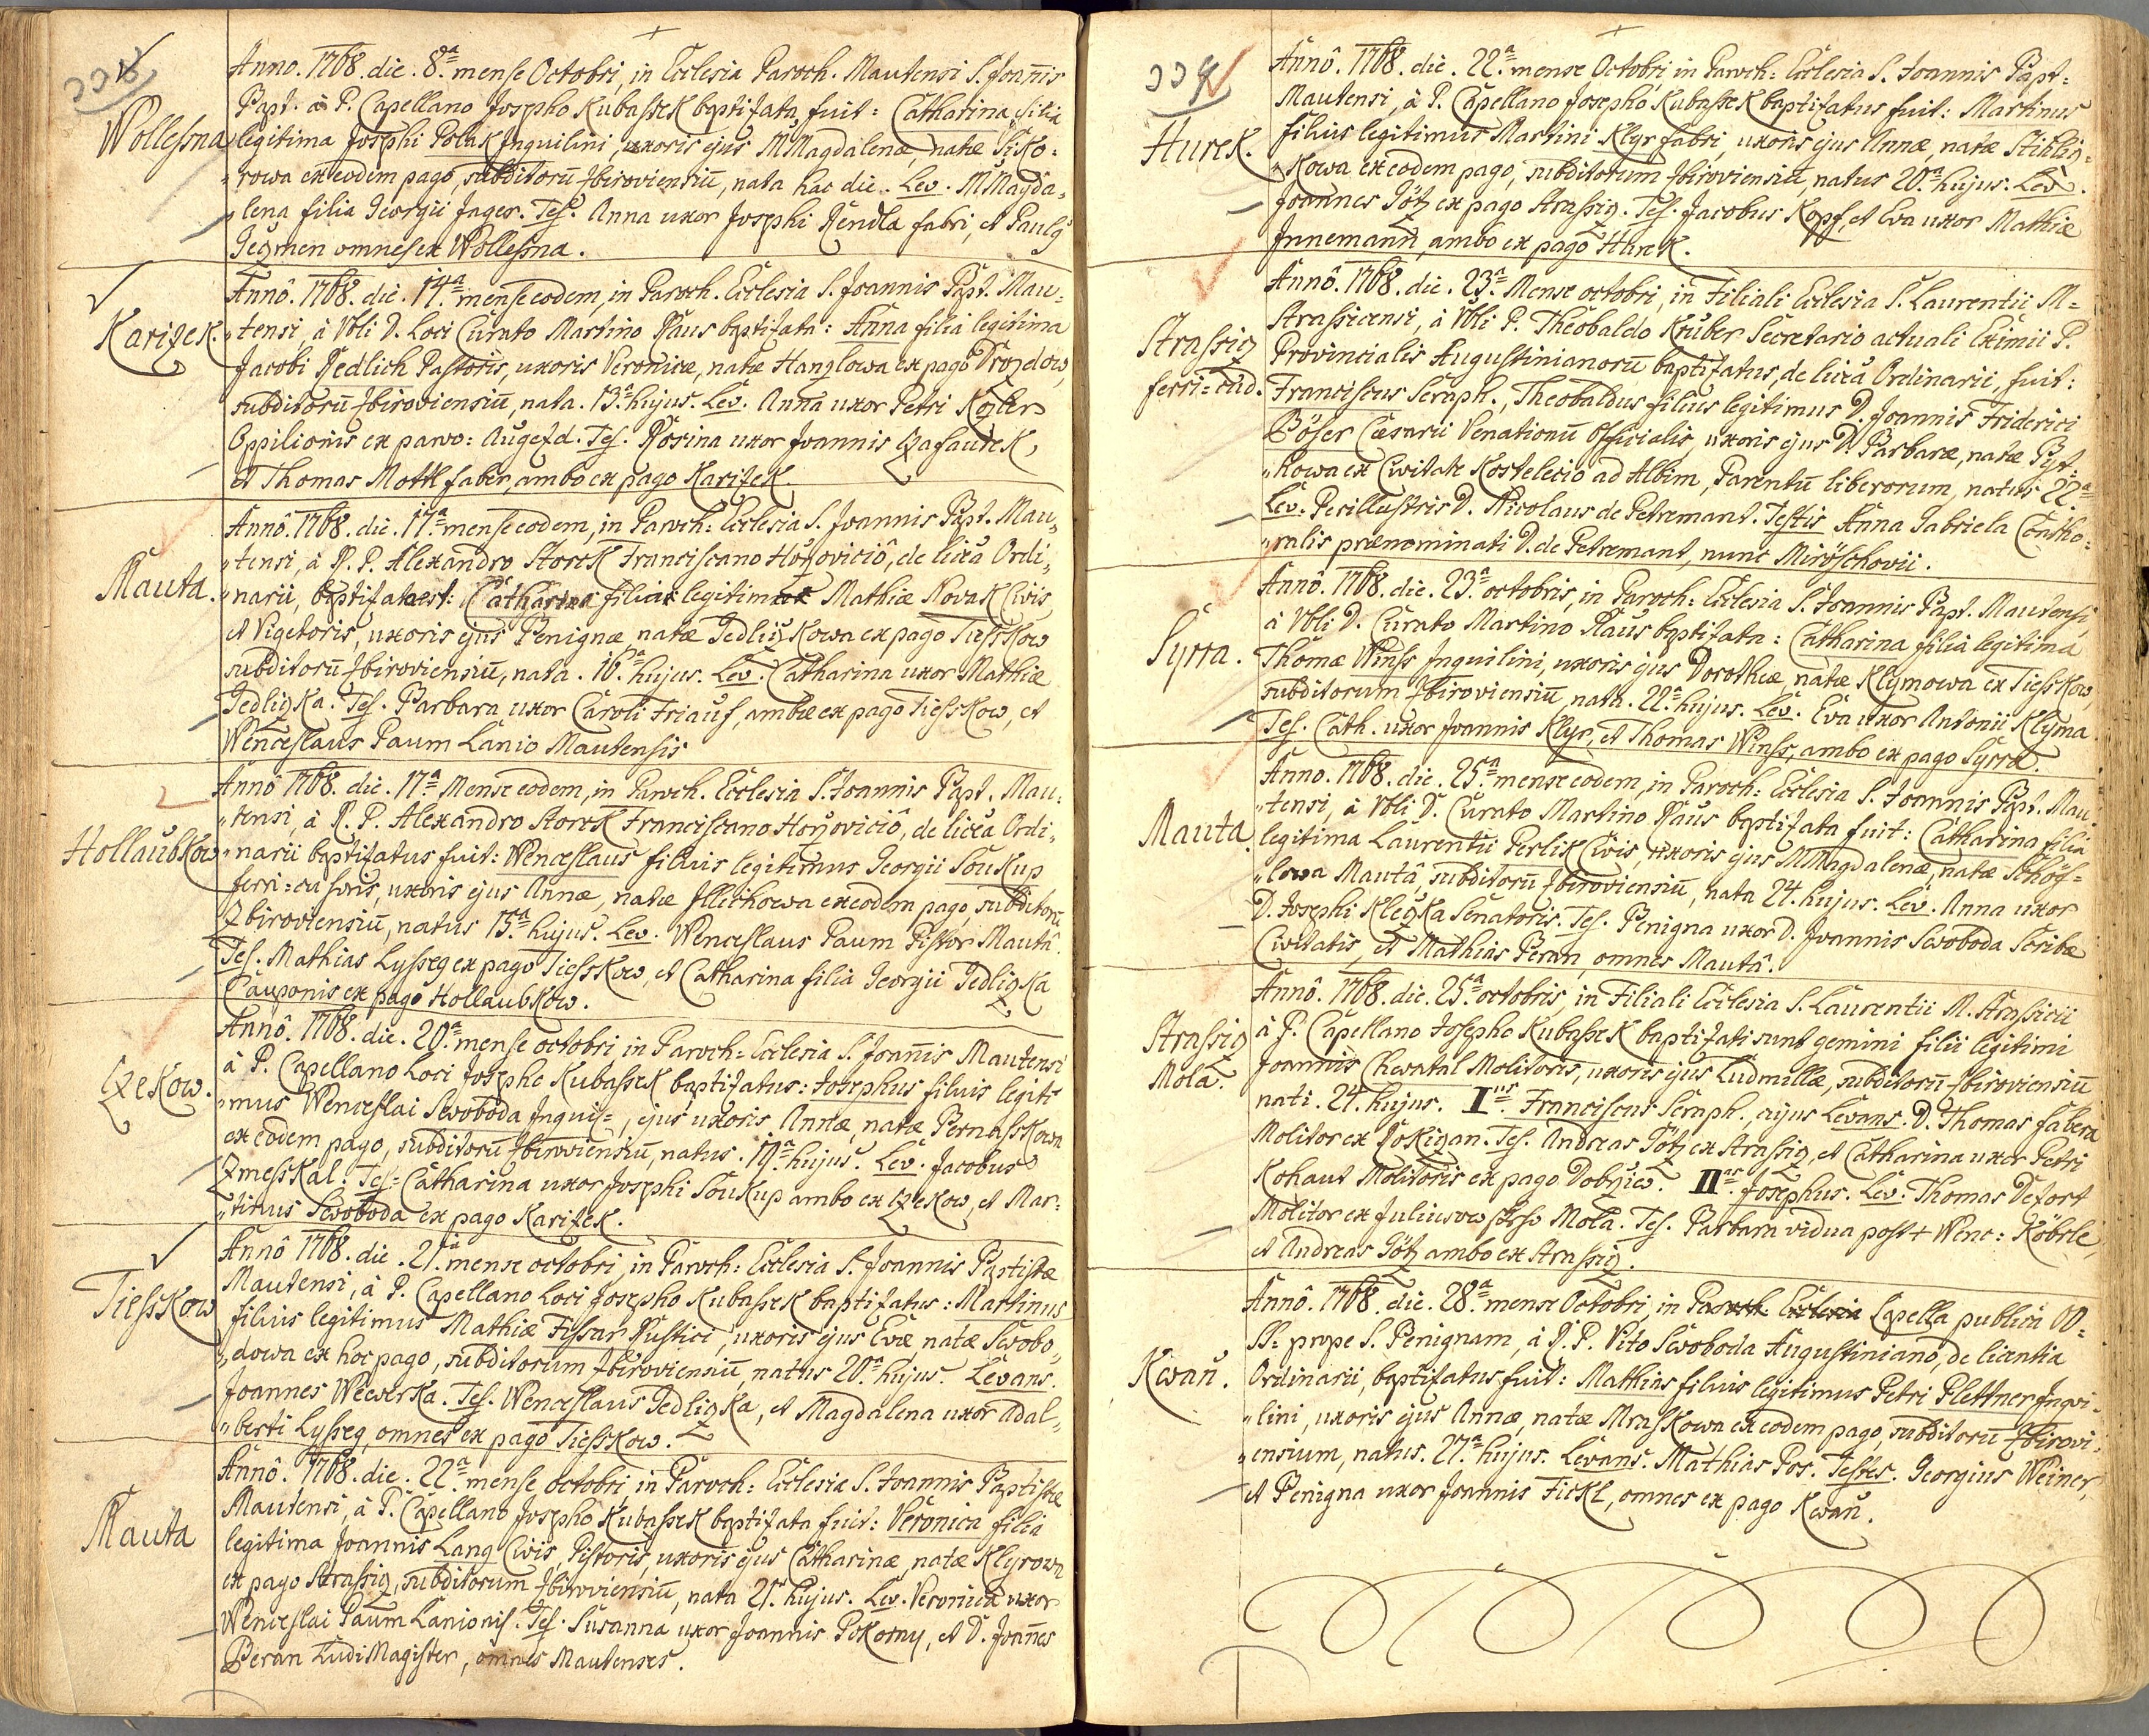 Wollessna
Anno. 1768. die. 8.a mense Octobri, in Ecclesia Paroch. Mautensi S. Joannis
Bapt. à P. Capellano Josepho Kubassek baptizata fuit: Catharina filia
legitima Josephi Polak Inquilini, uxoris ejus M. Magdalenæ, natæ Siko=
„rowa ex eodem pago, subditorū Zbiroviensiū, nata hac die. Lev. M. Magda=
„lena filia Georgii Jager. Tes. Anna uxor Josephi Rendla fabri, et Paulq
Jezmen omnes ex Wollessna.
Karizek.
Annô. 1768. die. 14.a mense eodem, in Paroch. Ecclesia S. Joannis Bapt. Mau=
„tensi, à Vbli D. Loci Curato Martino Raus baptizata: Anna filia legitima
Jacobi Redlich Pastoris, uxoris Veronicæ, natæ Hanzlowa ex pago Drozdow,
subditorū Zbiroviensiū, nata. 13.a hujus. Lev. Anna uxor Petri Kozler
Oppilionis ex parvo: Augezd. Tes. Rosina uxor Joannis Czasautek,
et Thomas Mottl faber, ambo ex pago Karizek.
Mauta.
Annô. 1768. die. 17.a mense eodem, in Paroch: Ecclesia S. Joannis Bapt. Mau=
„tensi, à R. P. Alexandro Storck Franciscano Horzoviciô, de licêa Ordi=
„narii, baptizata est: Catharina filia legitima Mathiæ Novak Civis
et Vigetoris, uxoris ejus Benignæ natæ Jedliczkowa ex pago Tiesskow
subditorū Zbiroviensiū, nata. 16.a hujus. Lev. Catharina uxor Mathiæ
Jedliczka. Tes. Barbara uxor Caroli Friauf, ambæ ex pago Tiesskow, et
Wenceslaus Baum Lanio Mautensis
Hollaubkow
Annô 1768. die. 17.a Mense eodem, in Paroch. Ecclesia S. Joannis Bapt. Mau=
„tensi, à R. P. Alexandro Storck Franciscano Horzoviciô, de licêa Ordi=
„narii baptizatus fuit: Wenceslaus filius legitimus Georgii Soukup
ferri=cusoris, uxoris ejus Annæ, natæ Illichowa ex eodem pago, subditorū
Zbiroviensiū, natus 15.a hujus. Lev. Wenceslaus Baum Pistor Mautâ.
Tes. Mathias Lysseg ex pago Tiesskow, et Catharina filia Georgii Jedliczka
Cauponis ex pago Hollaubkow.
Czekow.
Annô. 1768. die. 20.a mense octobri in Paroch= Ecclesia S. Joannis Mautensi
à P. Capellano Loci Josepho Kubassek baptizatus: Josephus filius legiti=
„mus Wenceslai Swoboda Inqui=, ejus uxoris Annæ, natæ Bernasskowa
ex eodem pago, subditorū Zbiroviensiū, natus. 19.a hujus. Lev. Jacobus
Zmesskal. Tes= Catharina uxor Josephi Soukup ambo ex Czekow, et Mar=
„tinus Swoboda ex pago Karizek.
Tiesskow
Annô 1768. die. 21. mense octobri, in Paroch: Ecclesia S. Joannis Baptistæ
Mautensi, à P. Capellano Loci Josepho Kubassek baptizatus: Martinus
filius legitimus Mathiæ Fissar Rustici, uxoris ejus Evæ, natæ Swobo=
„dowa ex hoc pago, subditorum Zbiroviensiū, natus 20.a hujus. Levans.
Joannes Wewerka. Tes. Wenceslaus Jedliczka, et Magdalena uxor Adal=
„berti Lysseg, omnes ex pago Tiesskow.
Mauta
Annô. 1768. die. 22.a mense octobri, in Paroch: Ecclesia S. Joannis Baptistæ
Mautensi, à P. Capellano Josepho Kubassek baptizata fuit: Veronica filia
legitima Joannis Lang Civis, Pistoris, uxoris ejus Catharinæ, natæ Klyrowa
ex pago Strassiz, subditorum Zbiroviensiū, nata 21. hujus. Lev. Veronica uxor
Wenceslai Baum Lanionis. Tes. Susanna uxor Joannis Pokorny, et D. Joannes
Beran LudiMagister, omnes Mautenses.
Hurek.
Annô. 1768. die. 22.a mense Octobri, in Paroch: Ecclesia S. Joannis Bapt=
Mautensi, à P. Capellano Josepho Kubassek baptizatus fuit: Martinus
filius legitimus Martini Klyr fabri, uxoris ejus Annæ, natæ Stiblicz=
„Kowa ex eodem pago, subditorum Zbiroviensiū, natus 20.a hujus. Lev.
Joannes Götz ex pago Strassiz. Tes. Jacobus Kopf, et Eva uxor Mathiæ
Innemann, ambo ex pago Hurek.
Strassiz
ferri=cud.
Annô. 1768. die. 23.a Mense octobri, in Filiali Ecclesia S. Laurentii M=
Strassicensi, à Vbli P. Theobaldo Kruber Secretario actuali Eximii P.
Provincialis Augustinianorū baptizatus, de licêa Ordinarii, fuit:
Franciscus Seraph., Theobaldus filius legitimus D. Joannis Friderici
Böser Cæsarii Venationū Officialis, uxoris ejus D. Barbaræ, natæ Pyt=
„kowa ex Civitate Kostelecio ad Albim, Parentū liberorum, natus 22.a
Lev. Perillustris D. Nicolaus de Petremant. Testis Anna Gabriela Contho=
„ralis prænominati D. de Petremant, nunc Miröschovii.
Syrra.
Annô. 1768. die. 23.a octobris, in Paroch: Ecclesia S. Joannis Bapt. Mautensi,
à Vbli D. Curato Martino Raus baptizata: Catharina filia legitima
Thomæ Winss Inquilini, uxoris ejus Dorotheæ natæ Klymowa ex Tiesskow,
subditorum Zbiroviensiū, nata. 22.a hujus. Lev. Eva uxor Antonii Klyma.
Tes. Cath. uxor Joannis Klyr, et Thomas Winss, ambo ex pago Syrra.
Mauta.
Anno. 1768. die. 25.a mense eodem, in Paroch: Ecclesia S. Joannis Bapt. Mau=
„tensi, à Vbli D. Curato Martino Raus baptizata fuit: Catharina filia
legitima Laurentii Perlik Civis, uxoris ejus M. Magdalenæ, natæ Schöf=
„lowa Mautâ, subditorū Zbiroviensiū, nata 24. hujus. Lev. Anna uxor
D. Josephi Kleczka Senatoris. Tes. Benigna uxor D. Joannis Swoboda Scribæ
Civitatis, et Mathias Beran, omnes Mautâ.
Strassiz
Mola.
Annô. 1768. die. 25.a octobris, in Filiali Ecclesia S. Laurentii M. Strassicii
à P. Capellano Josepho Kubassek baptizati sunt gemini filii legitimi
Joannis Chwatal Molitoris, uxoris ejus Ludmillæ, subditorū Zbiroviensiū
nati. 24. hujus. Ius. Franciscus Seraph., cujus Levans. D. Thomas Fabera
Molitor ex Rokizan. Tes. Andreas Götz ex Strassiz, et Catharina uxor Petri
Kohaut Molitoris ex pago Dobrziw. IIus. Josephus. Lev. Thomas Defort
Molitor ex Mola. Tes. Barbara vidua post + Wenc: Köbrle,
et Andreas Götz ambo ex Strassiz.
Kwan.
Annô. 1768. die. 28.a mense Octobri, in Capella publica OO=
SS= prope S. Benignam, à R. P. Vito Swoboda Augustiniano, de licentia
Ordinarii, baptizatus fuit: Mathias filius legitimus Petri Plettner Inqui=
„lini, uxoris ejus Annæ, natæ Mrasskowa ex eodem pago, subditorū Zbirovi=
„ensium, natus. 27.a hujus. Levans. Mathias Pos. Testes. Georgius Weiner,
et Benigna uxor Joannis Fickl, omnes ex pago Kwan.